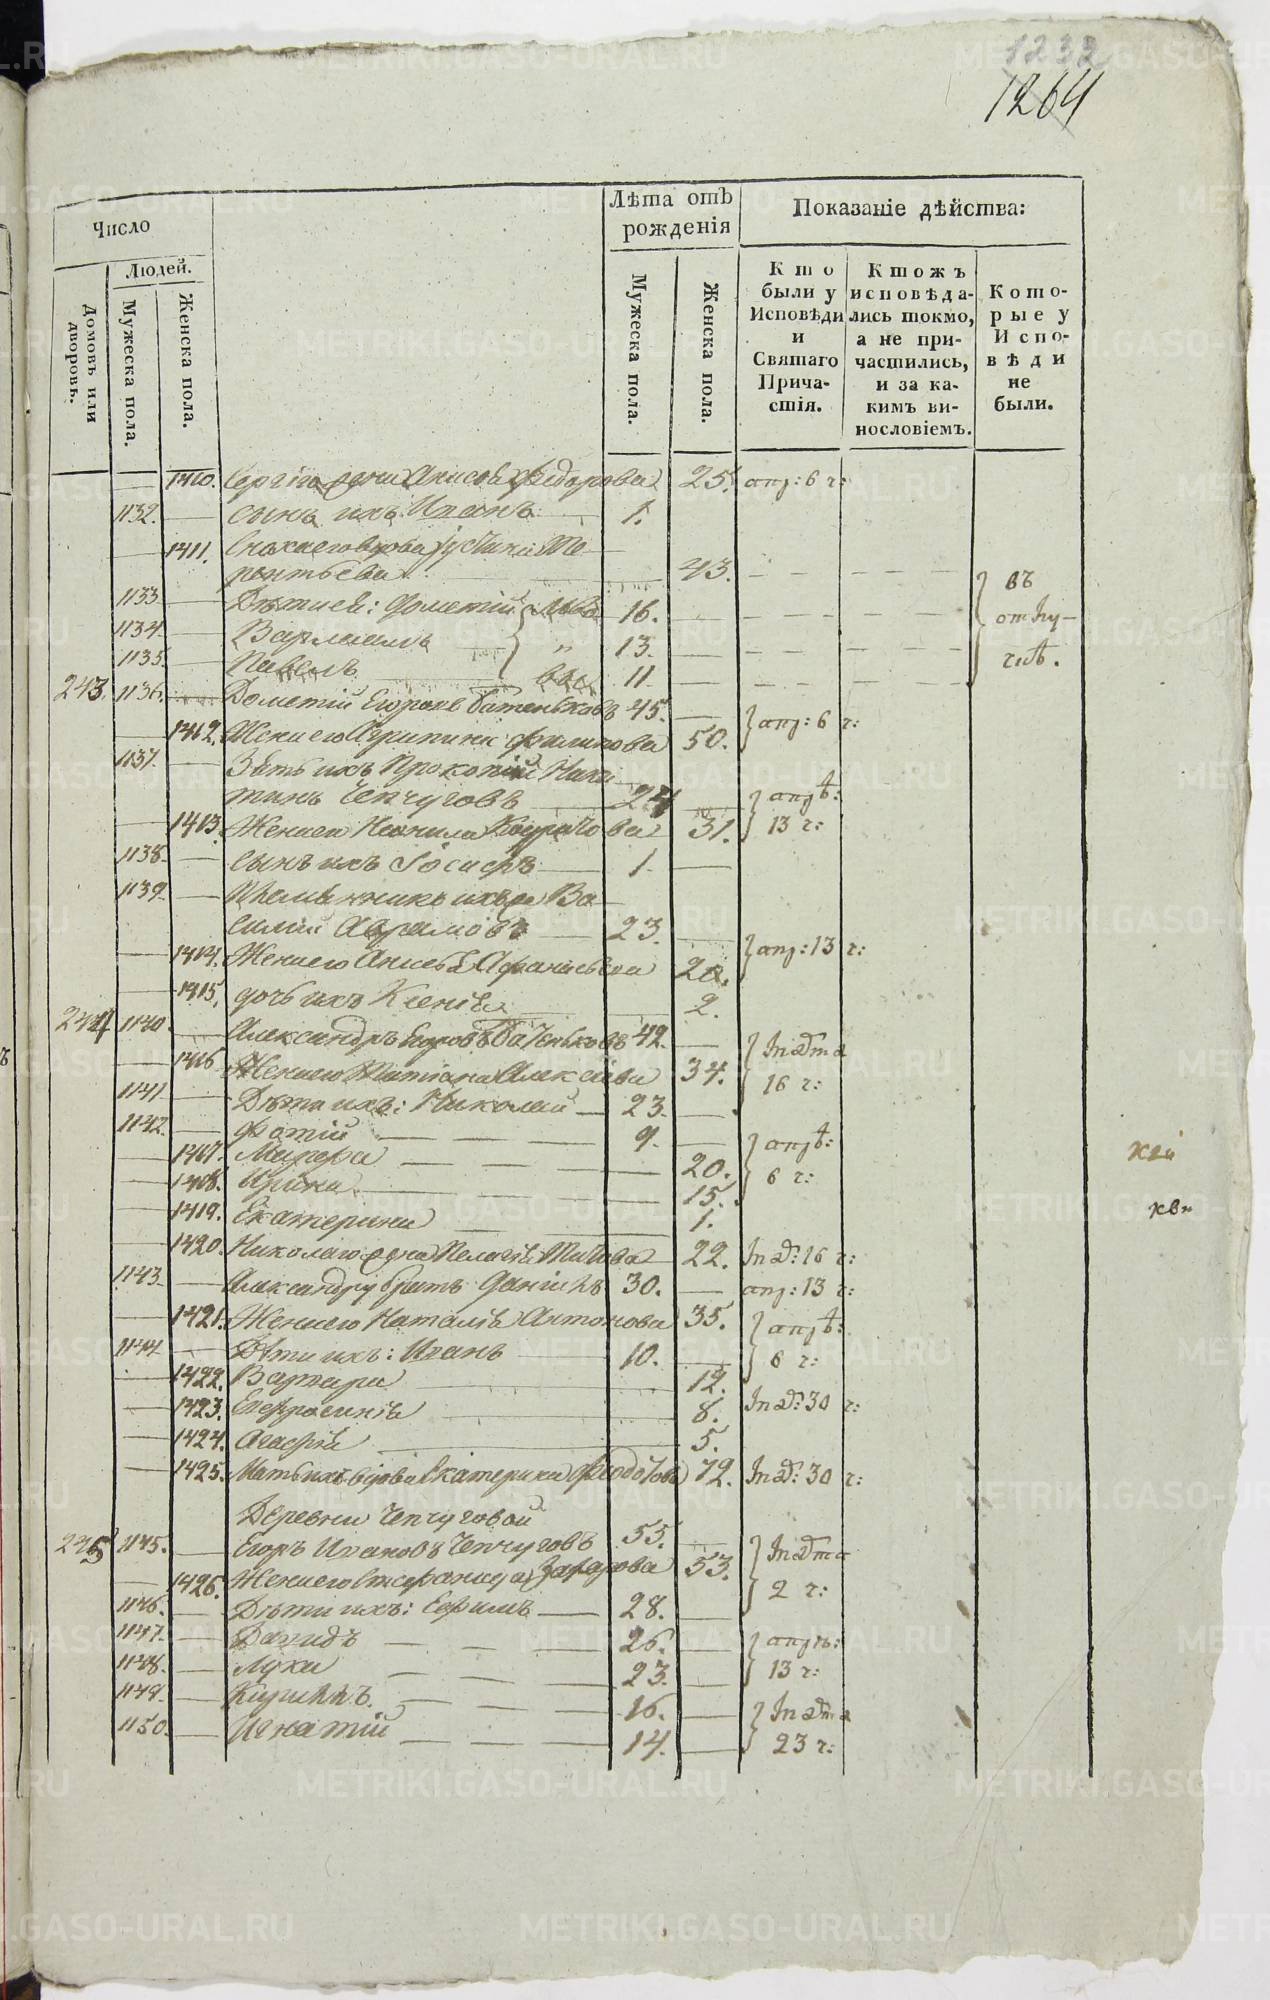 1232
1264
Число
Людей.
Домовъ или дворовъ.
Мужеска пола.
Женска пола.
Лѣта отъ рожденія
Мужеска пола.
Женска пола.
Показаніе дѣйства:
Кто были у Исповѣди и Святаго Причастія.
Ктожъ исповѣдались токмо, а не причастились, и за какимъ винословіемъ.
Которые у Исповѣди не были.
1410. Сергіго жена Анисья Федорова 25. апр: 6 ч:
1132. сынъ ихъ Иванъ 1.
1411. вдова Те
рентьева 43. въ
1133 Дѣти ея: Дометій 16. отлу-
1134 Варлаамъ „ 13. чкѣ.
1135 Павелъ 11
243. 1136. Дометій Егоровъ Батеньковъ 45.
1412. Жена его Агрипина Филипова 50. апр: 6 ч:
1137. Зять ихъ Прокопій Ники
тинъ Чепчуговъ 24 апрѣ:
1413. Жена его Неонила Кодратова 31. 13 ч:
1138. сынъ ихъ Іосифъ 1
1139. Племянникъ ихъ Ва
силій Аврамовъ 23.
1414. Жена его Анисья Афанасьева 20. апр: 13 ч:
1415. дочь ихъ Ксенія 2.
244 1140. Александръ Егоровъ Батеньковъ 42.
1416 Жена его Татіана Алексіева 34. 16 ч:
1141 Дѣти ихъ: Николай 23.
1142. Фотій 9. апрѣ:
1417. Мавра 20. 6 ч:
1418. Ирина 15.
1419. Екатерина 1.
1420. Николаю жена Пелагія Титова 22. 16 ч:
1143. Александру братъ Даніилъ 30. апр: 13 ч:
1421. Жена его Наталія Антонова 35. апрѣ:
1144 Дѣти ихъ: Иванъ 10. 6 ч:
1422. Варвара 12.
1423. Евфросинія 8. 30 ч:
1424. Агафія 5.
1425. Мать ихъ вдова Екатерина Федотова 72. 30 ч:
Деревни Чепчуговой
245 1145. Егоръ Ивановъ Чепчуговъ 55.
1426. Жена его Стефанида Захарова 53. 2 ч:
1146. Дѣти ихъ: Ефимъ 28.
1147. Давидъ 26. апрѣ:
1148. Лука 23. 13 ч:
1149. Кириллъ 16.
1150. Игнатій 14. 23 ч:
METRIKI.GASO-URAL.RU